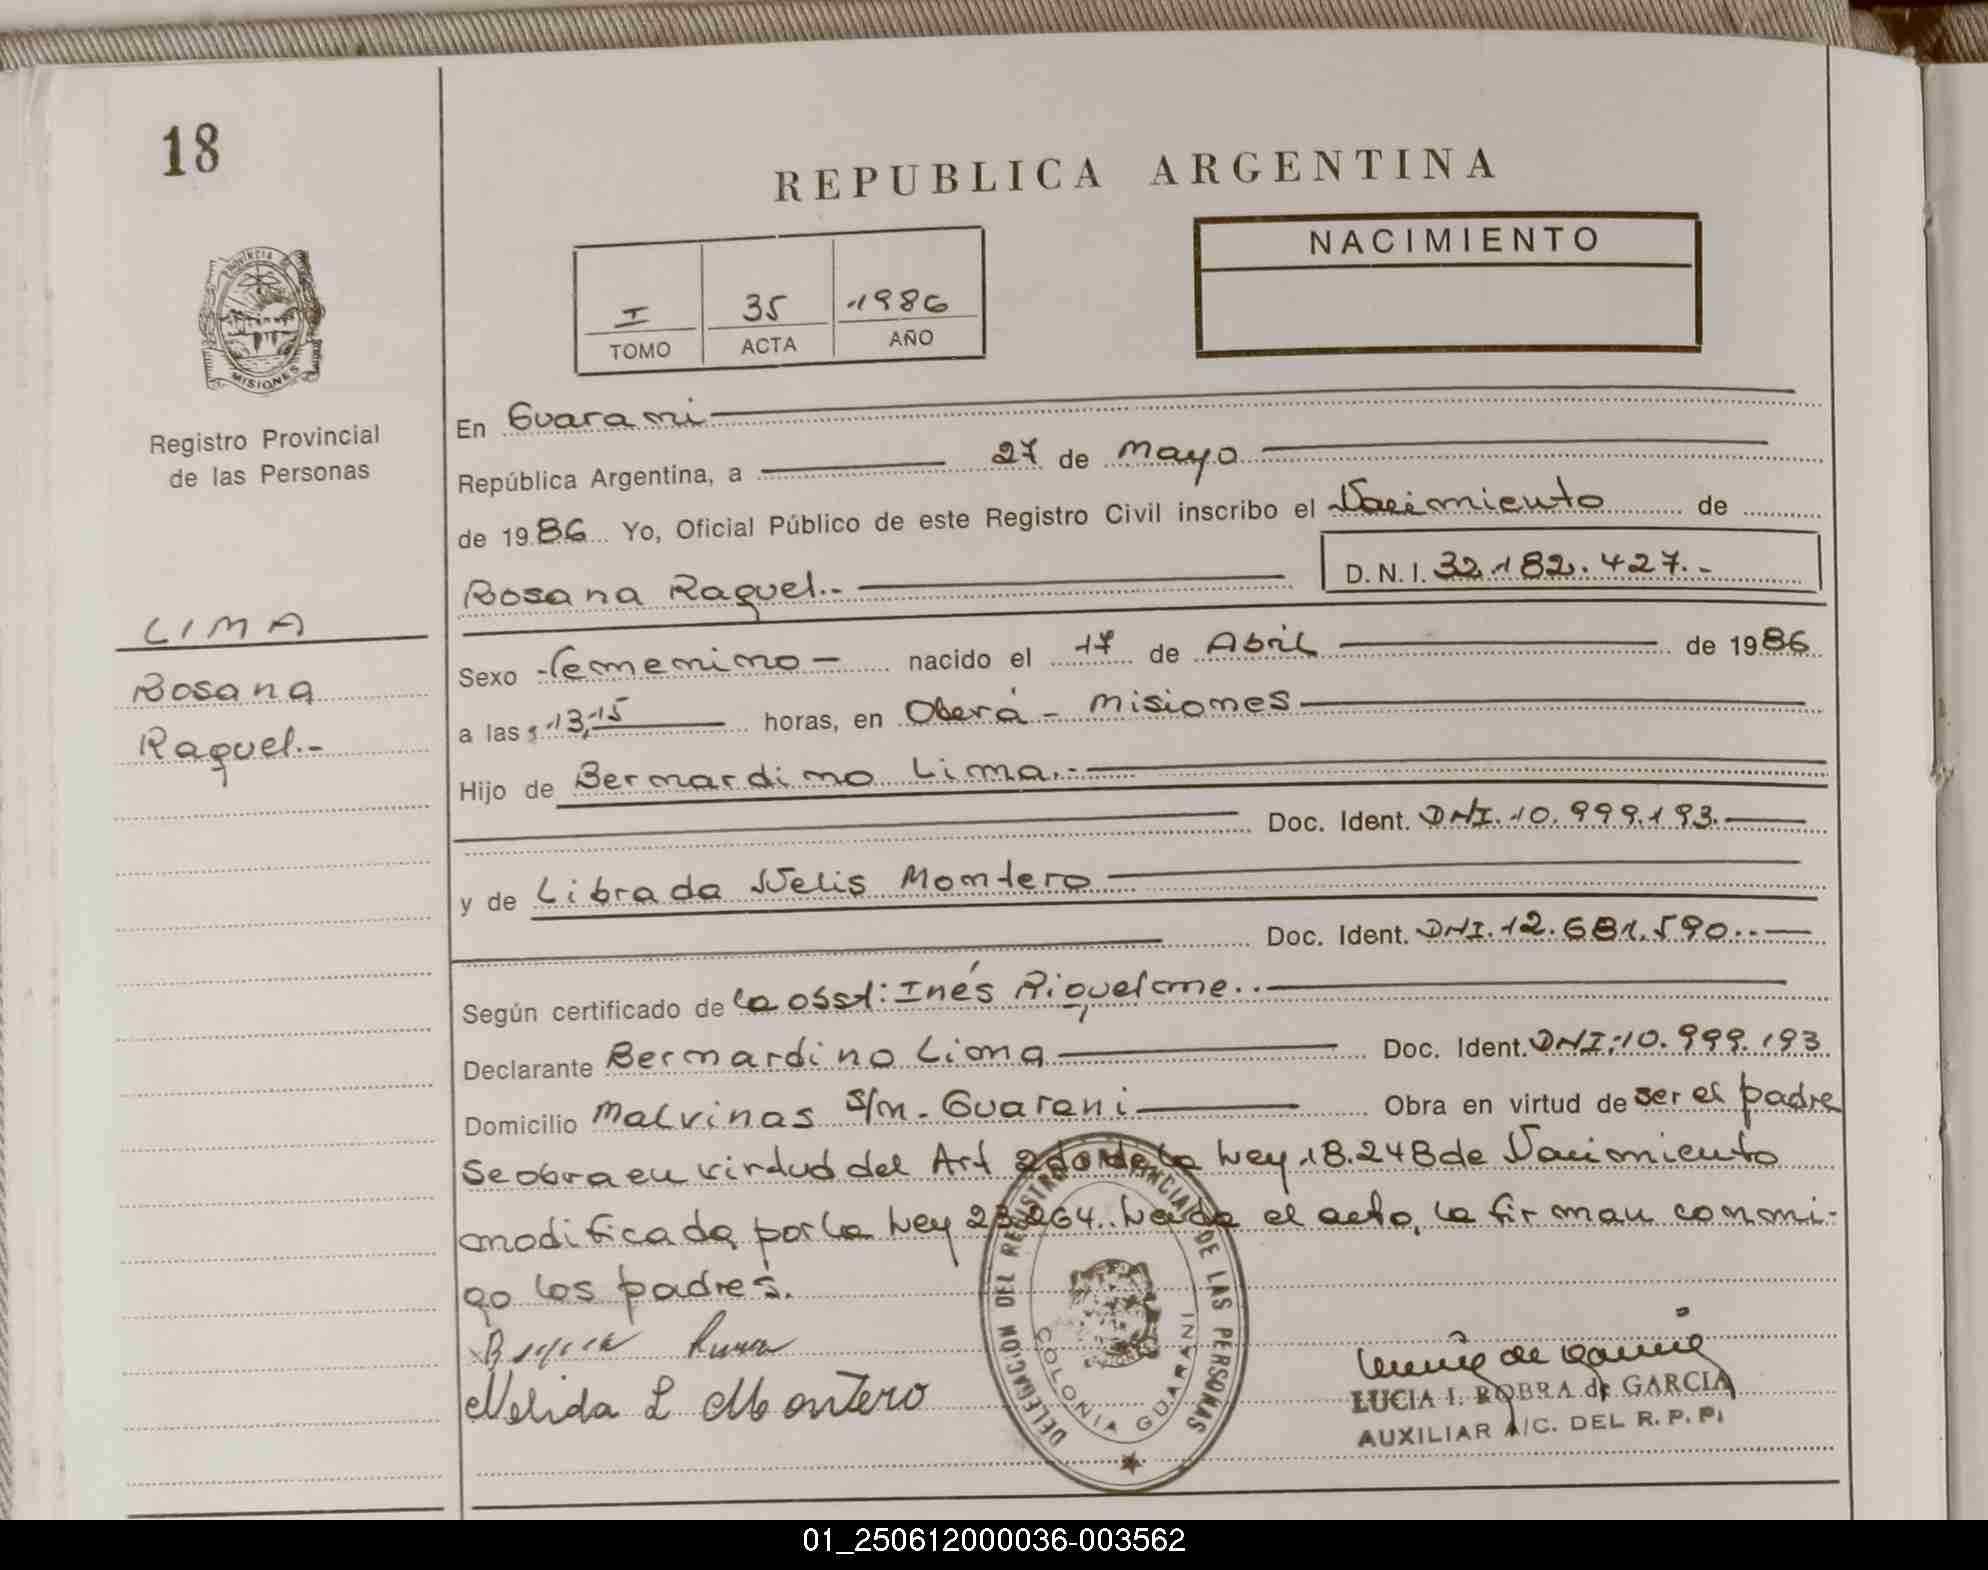 18
REPUBLICA ARGENTINA
NACIMIENTO
I 35 1986
TOMO ACTA AÑO
PROVINCIA DE
MISIONES
Registro Provincial
de las Personas
LIMA
Rosana
Raquel.-
En Guarani
República Argentina, a 27 de Mayo
de 1986 Yo, Oficial Público de este Registro Civil inscribo el Nacimiento de
Rosana Raquel.- D. N. I. 32.182.427.-
Sexo Femenino - nacido el 17 de Abril de 1986
a las 13,15 horas, en Oberá - Misiones
Hijo de Bernardino Lima.-
Doc. Ident. DNI.10.999.193.
y de Librada Nelis Montero
Doc. Ident. DNI.12.681.590..
Según certificado de la obst: Inés Riquelme..
Declarante Bernardino Lima Doc. Ident. DNI:10.999.193
Domicilio Malvinas s/n. Guarani Obra en virtud de ser el padre
Se obra en virtud del Art 2do de la Ley 18.248 de Nacimiento
modificada por la Ley 23.264.. Leida el acta, la firman conmi-
go los padres.
Nelida L Montero
DELEGACION DEL REGISTRO PROVINCIAL DE LAS PERSONAS
COLONIA GUARANI
LUCIA I. ROBRA de GARCIA
AUXILIAR A/C. DEL R. P. P.
01_250612000036-003562